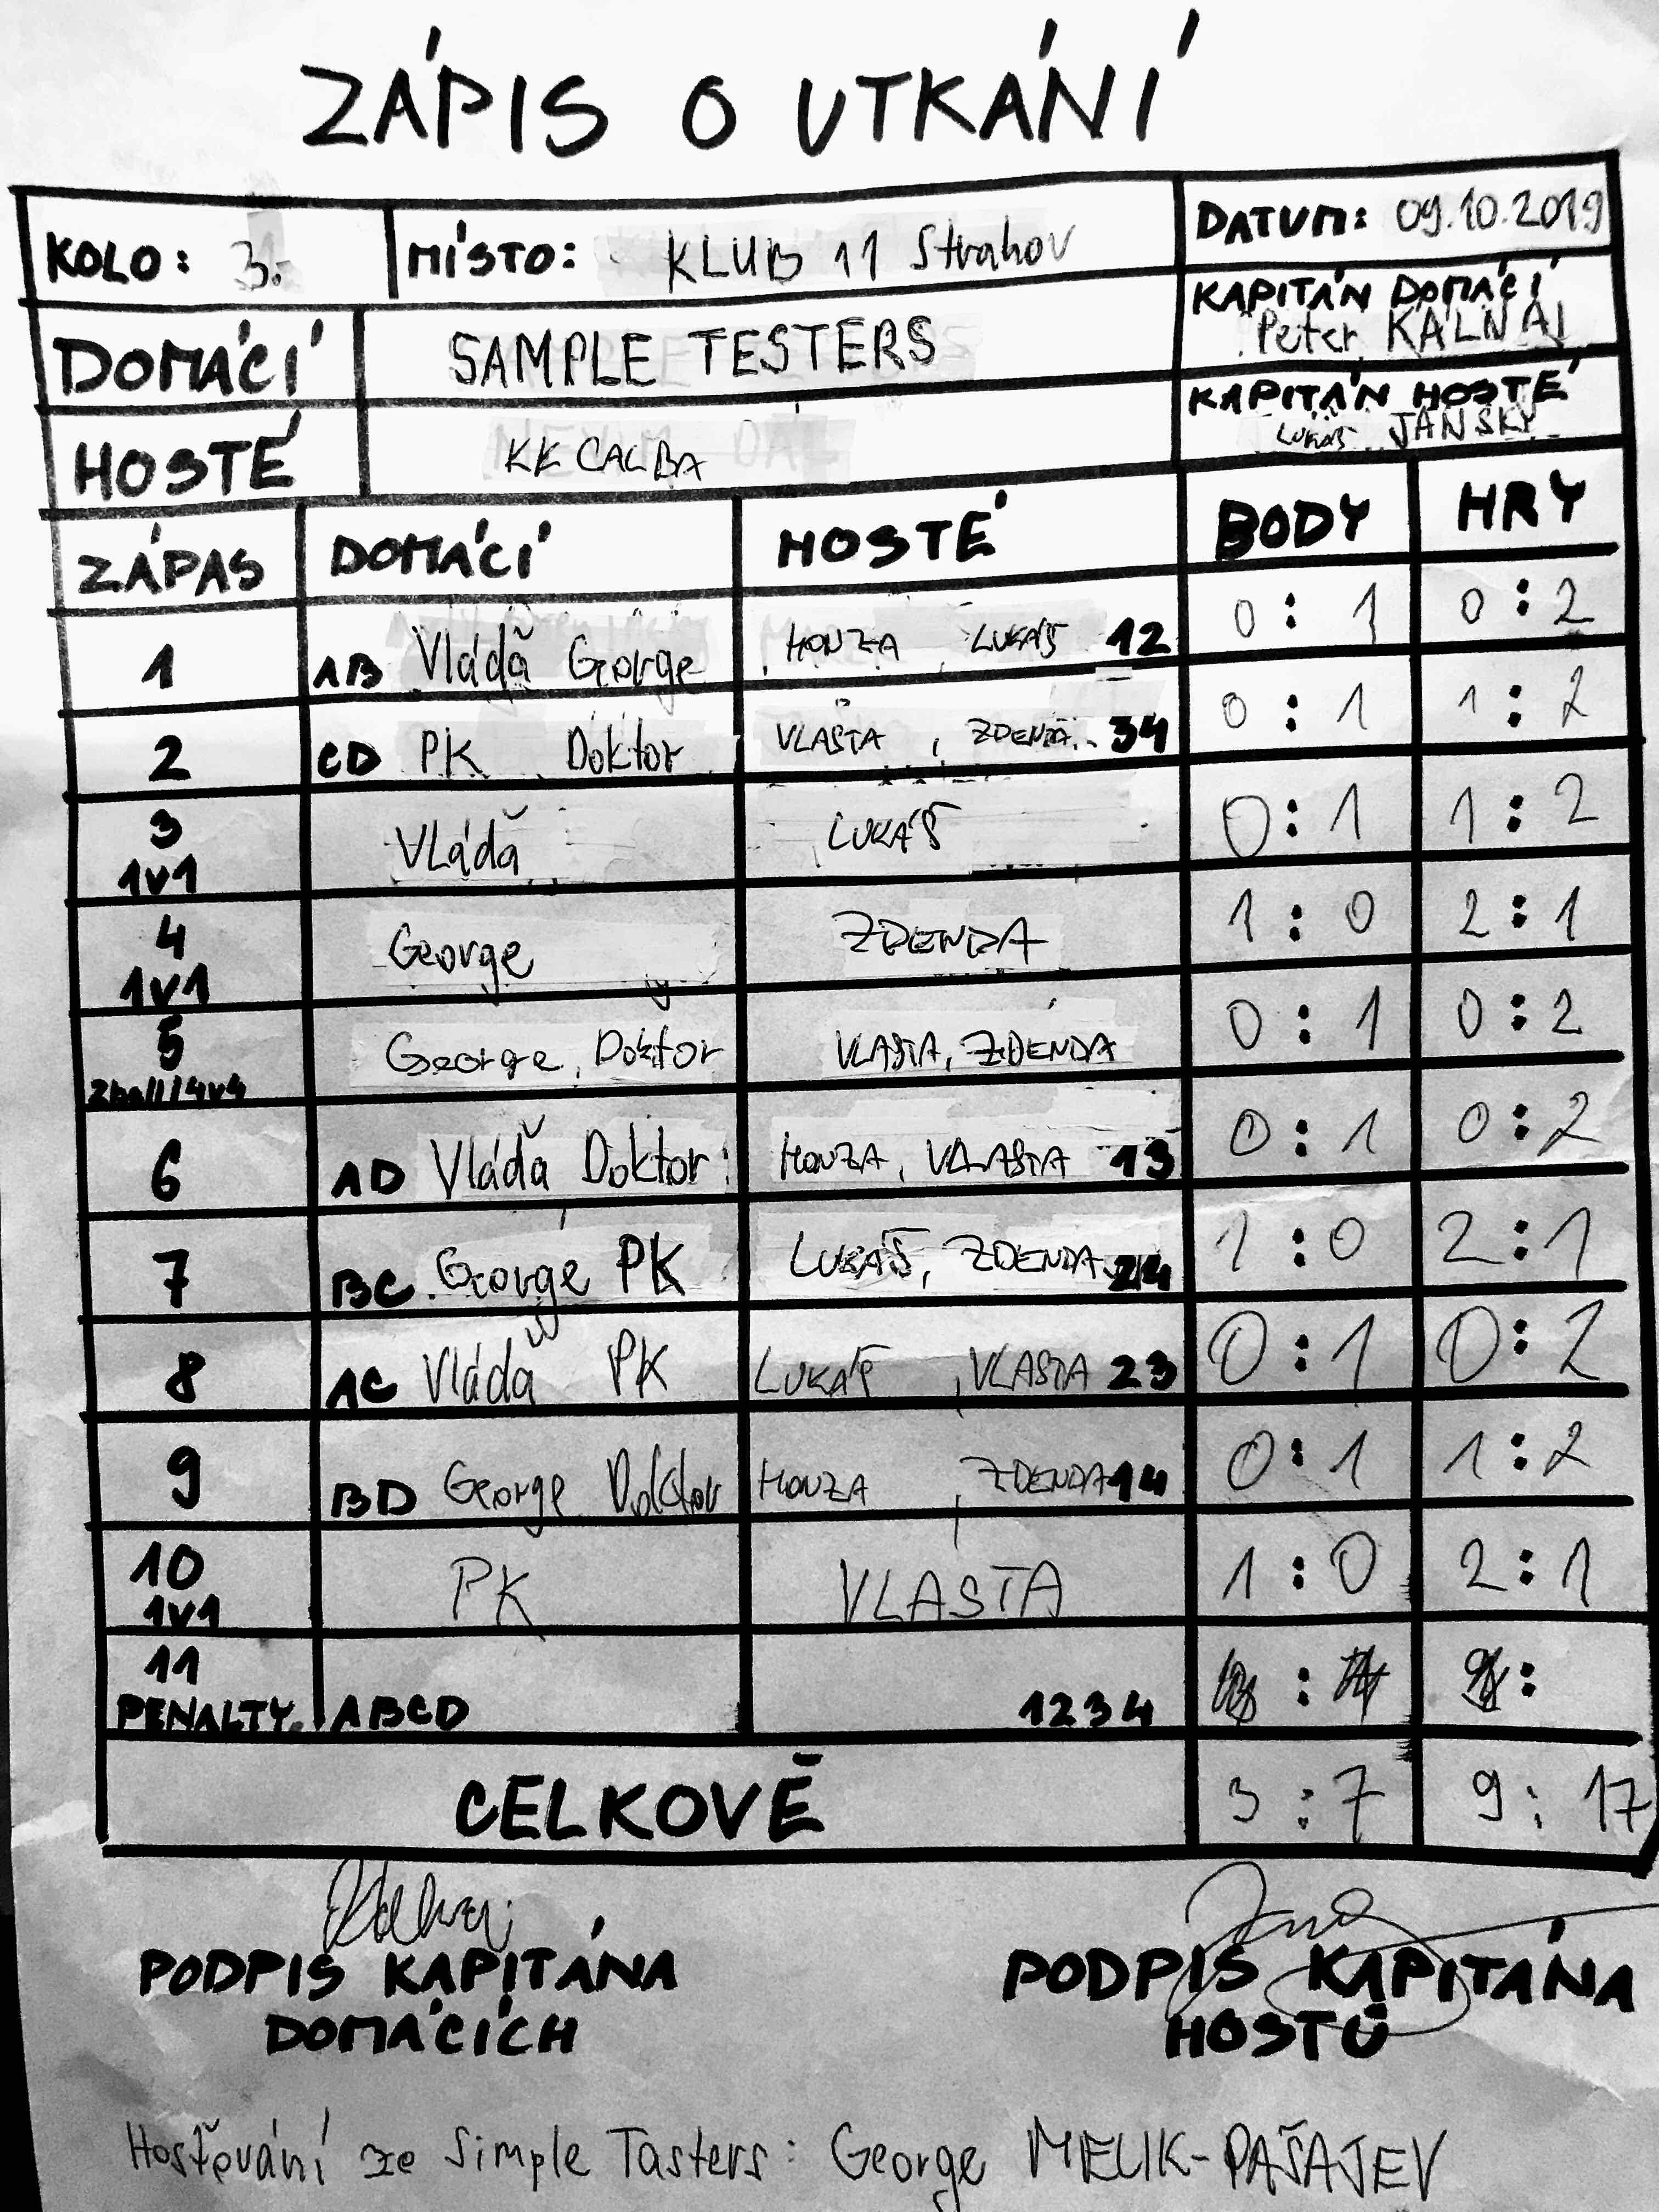 ZÁPIS O UTKÁNÍ
KOLO: 3. MÍSTO: KLUB 11 Strahov DATUM: 09.10.2019
KAPITÁN DOMÁCÍ
Peter KÁLNAI
DOMÁCÍ SAMPLE TESTERS
KAPITÁN HOSTÉ
LUKÁŠ JANSKÝ
HOSTÉ KK CALBA
ZÁPAS DOMÁCÍ HOSTÉ BODY HRY
1 AB Vláďa George HONZA LUKÁŠ 12 0 : 1 0 : 2
2 CD PK Doktor VLASTA, ZDENDA 34 0 : 1 1 : 2
3 1v1 Vláďa LUKÁŠ 0 : 1 1 : 2
4 1v1 George ZDENDA 1 : 0 2 : 1
5 2ball/4v4 George, Doktor VLASTA, ZDENDA 0 : 1 0 : 2
6 AD Vláďa Doktor HONZA, VLASTA 13 0 : 1 0 : 2
7 BC George PK LUKÁŠ, ZDENDA 24 1 : 0 2 : 1
8 AC Vláďa PK LUKÁŠ, VLASTA 23 0 : 1 0 : 2
9 BD George Doktor HONZA, ZDENDA 14 0 : 1 1 : 2
10 1v1 PK VLASTA 1 : 0 2 : 1
11 PENALTY ABCD 1234 : :
CELKOVĚ 3 : 7 9 : 17
PODPIS KAPITÁNA DOMÁCÍCH
PODPIS KAPITÁNA HOSTŮ
Hosťování ze Simple Tasters: George MELIK-PAŠAJEV